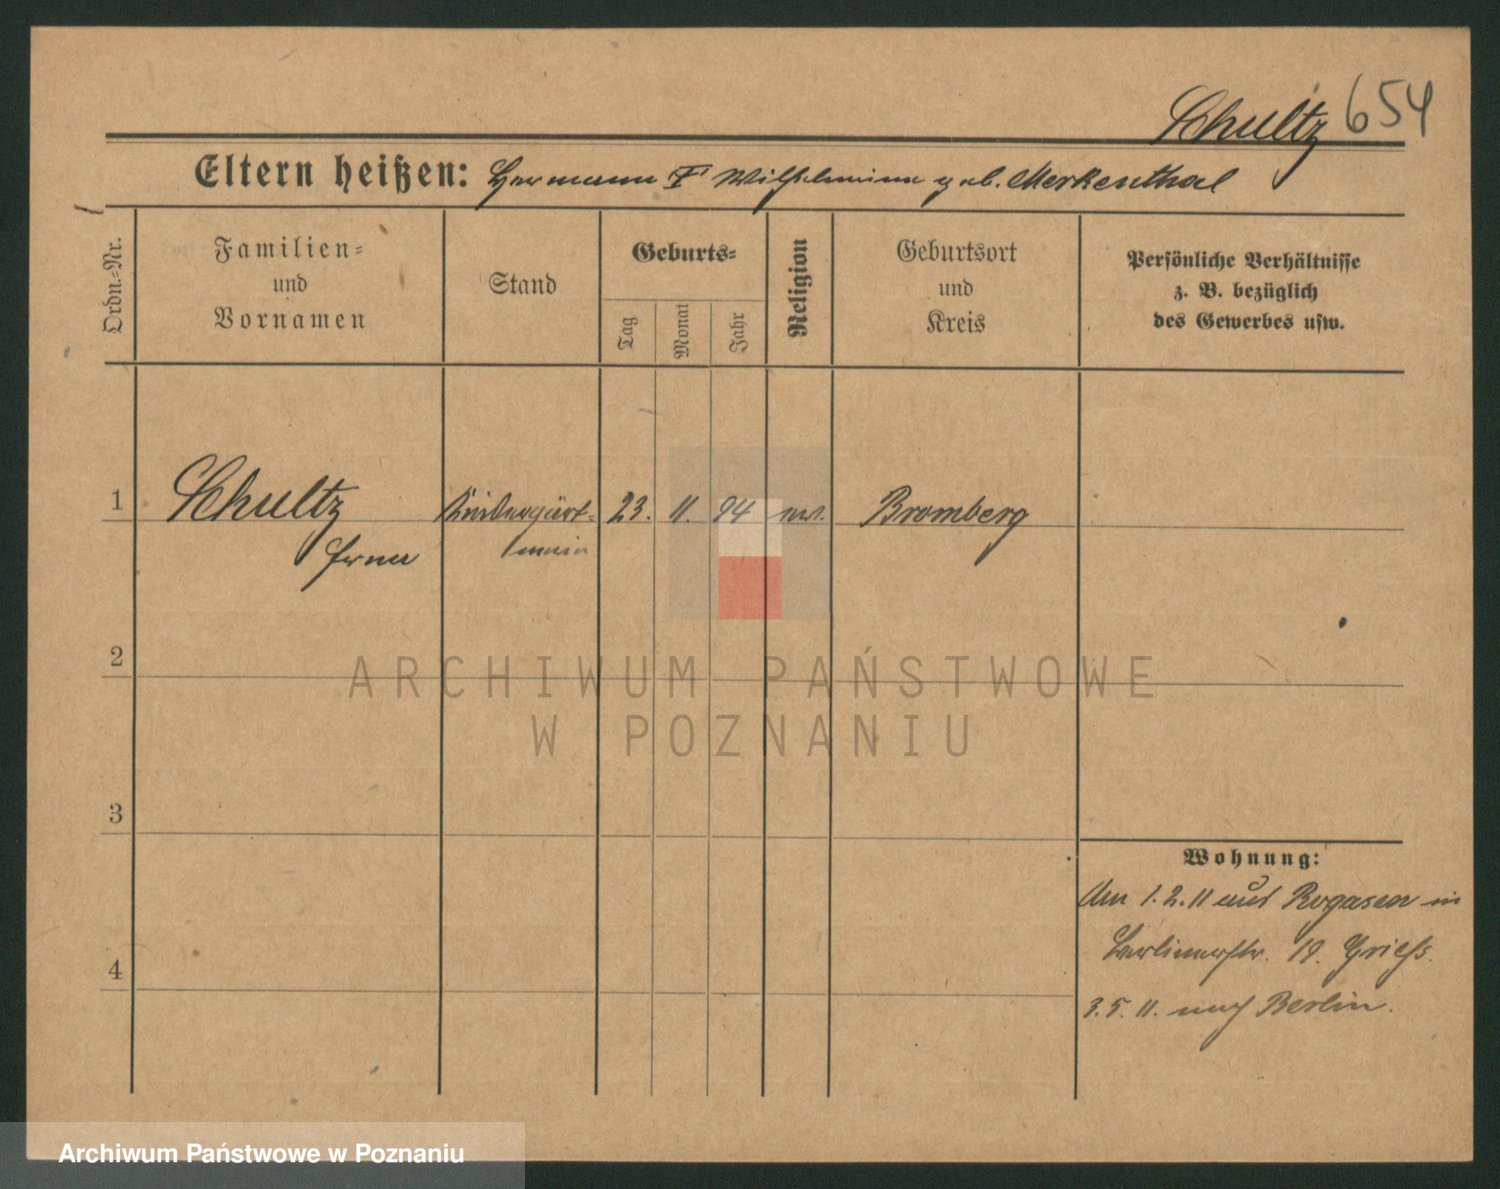 Schultz 654
Eltern heißen: Hermann & Wilhelmine geb. Merkenthal
Ordn.-Nr.
Familien-
und
Vornamen
Stand
Geburts-
Tag
Monat
Jahr
Religion
Geburtsort
und
Kreis
Persönliche Verhältnisse
z. B. bezüglich
des Gewerbes usw.
1 Schultz Kindergärt- 23. 11. 94 ev. Bromberg
Erna nerin
2
3
4
Wohnung:
Am 1.2.11 aus Rogasen in
Berlinerstr. 19.
3.5.11. nach Berlin.
ARCHIWUM PAŃSTWOWE
W POZNANIU
Archiwum Państwowe w Poznaniu